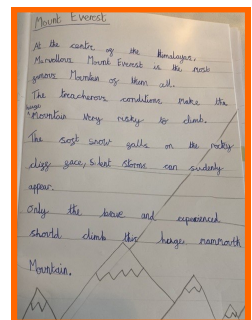 Mount Everest
At the centre of the Himalayas,
Marvellous Mount Everest is the most
famous Mountain of them all.
The treacherous conditions make the
huge
Mountain very risky to climb.
The soft snow falls on the rocky
cliff face, silent storms can sudenly
appear.
Only the brave and experienced
should climb this huge mammouth
Mountain.